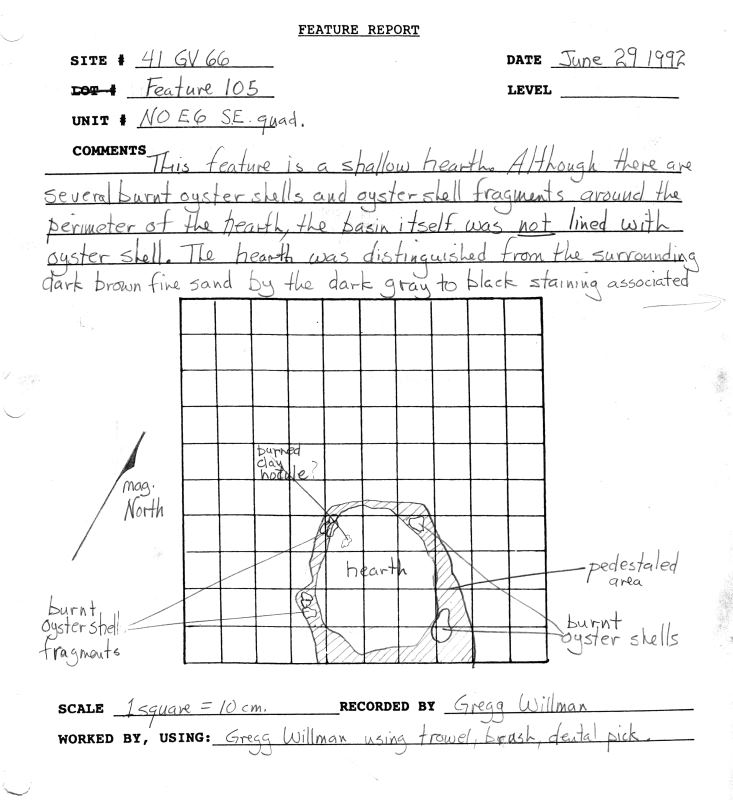 FEATURE REPORT
SITE # 41 GV 66 DATE June 29 1992
LOT # Feature 105 LEVEL
UNIT # N0 E6 SE. quad.
COMMENTS This feature is a shallow hearth. Although there are
several burnt oyster shells and oyster shell fragments around the
perimeter of the hearth, the basin itself was not lined with
oyster shell. The hearth was distinguished from the surrounding
dark brown fine sand by the dark gray to black staining associated
burned
clay
nodule?
mag.
North
hearth
pedestaled
area
burnt
oyster shell
fragments
burnt
oyster shells
SCALE 1 square = 10 cm. RECORDED BY Gregg Willman
WORKED BY, USING: Gregg Willman using trowel, brush, dental pick.